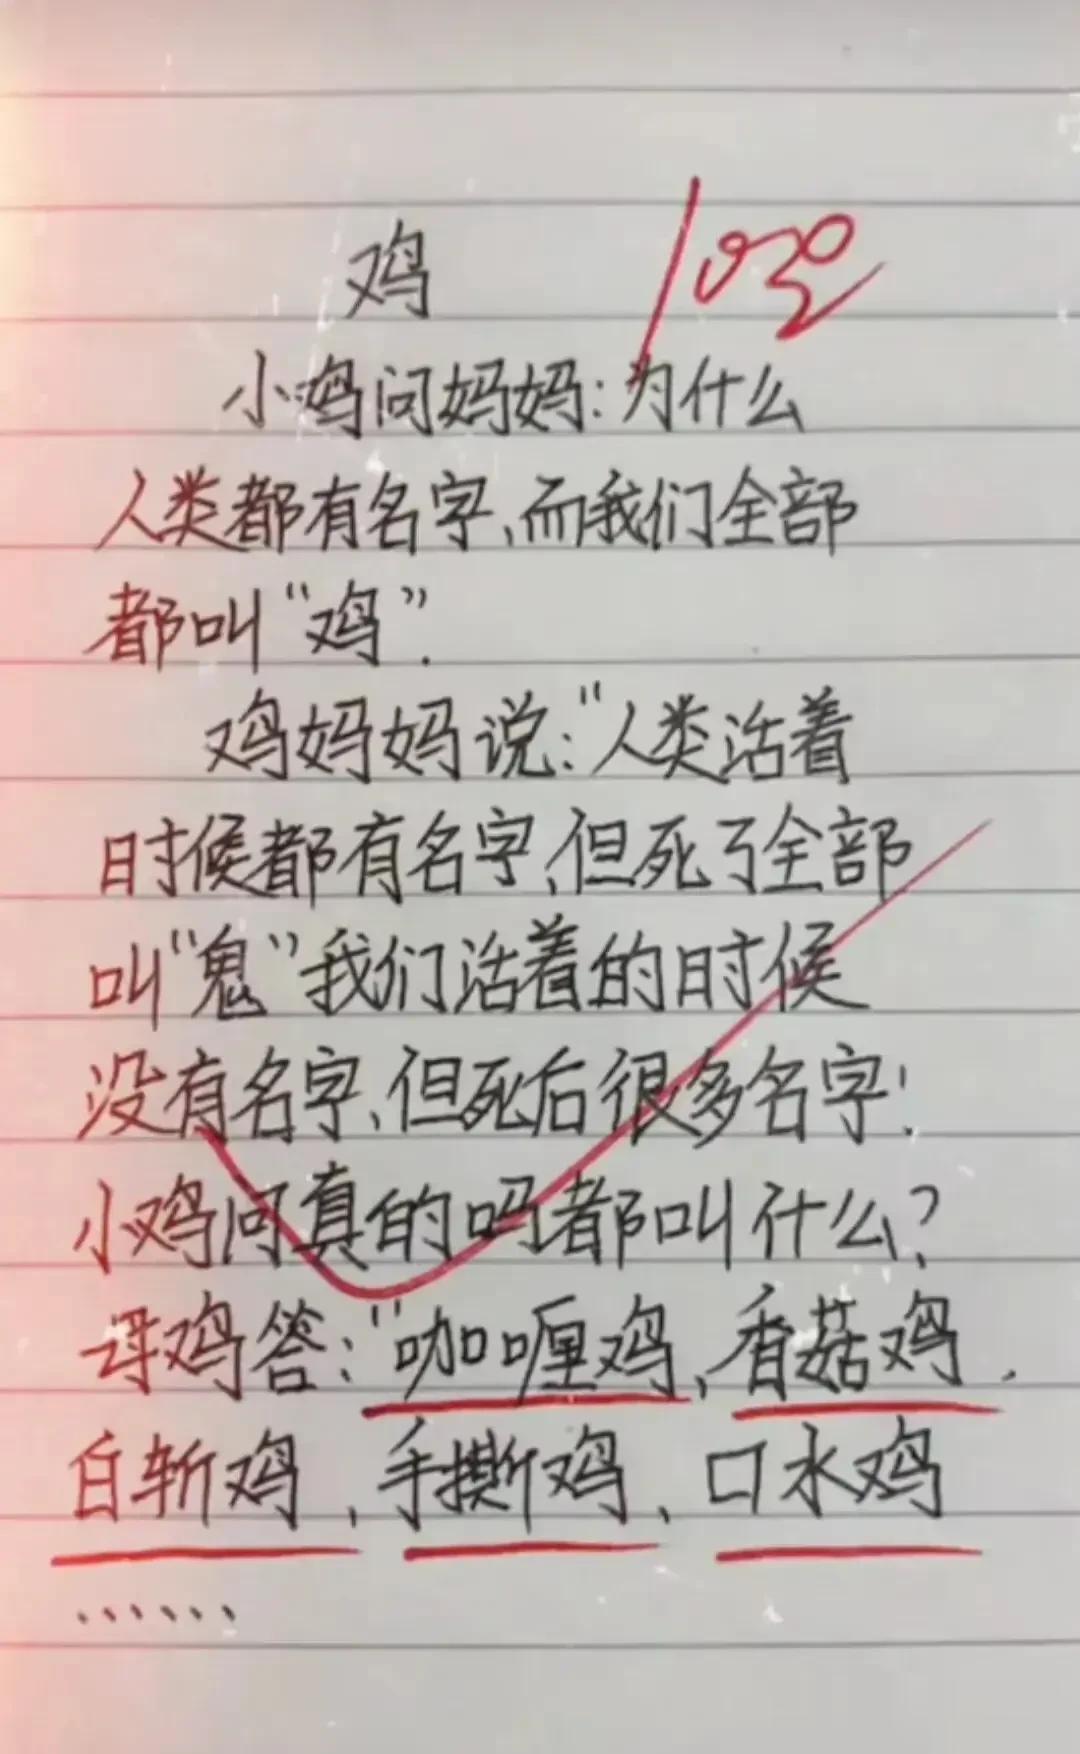 鸡
100
小鸡问妈妈:为什么
人类都有名字、而我们全部
都叫“鸡”.
鸡妈妈说:“人类活着
时候都有名字、但死了全部
叫“鬼”我们活着的时候
没有名字、但死后很多名字!
小鸡问真的吗都叫什么?
母鸡答:“咖喱鸡、香菇鸡、
白斩鸡、手撕鸡、口水鸡
……